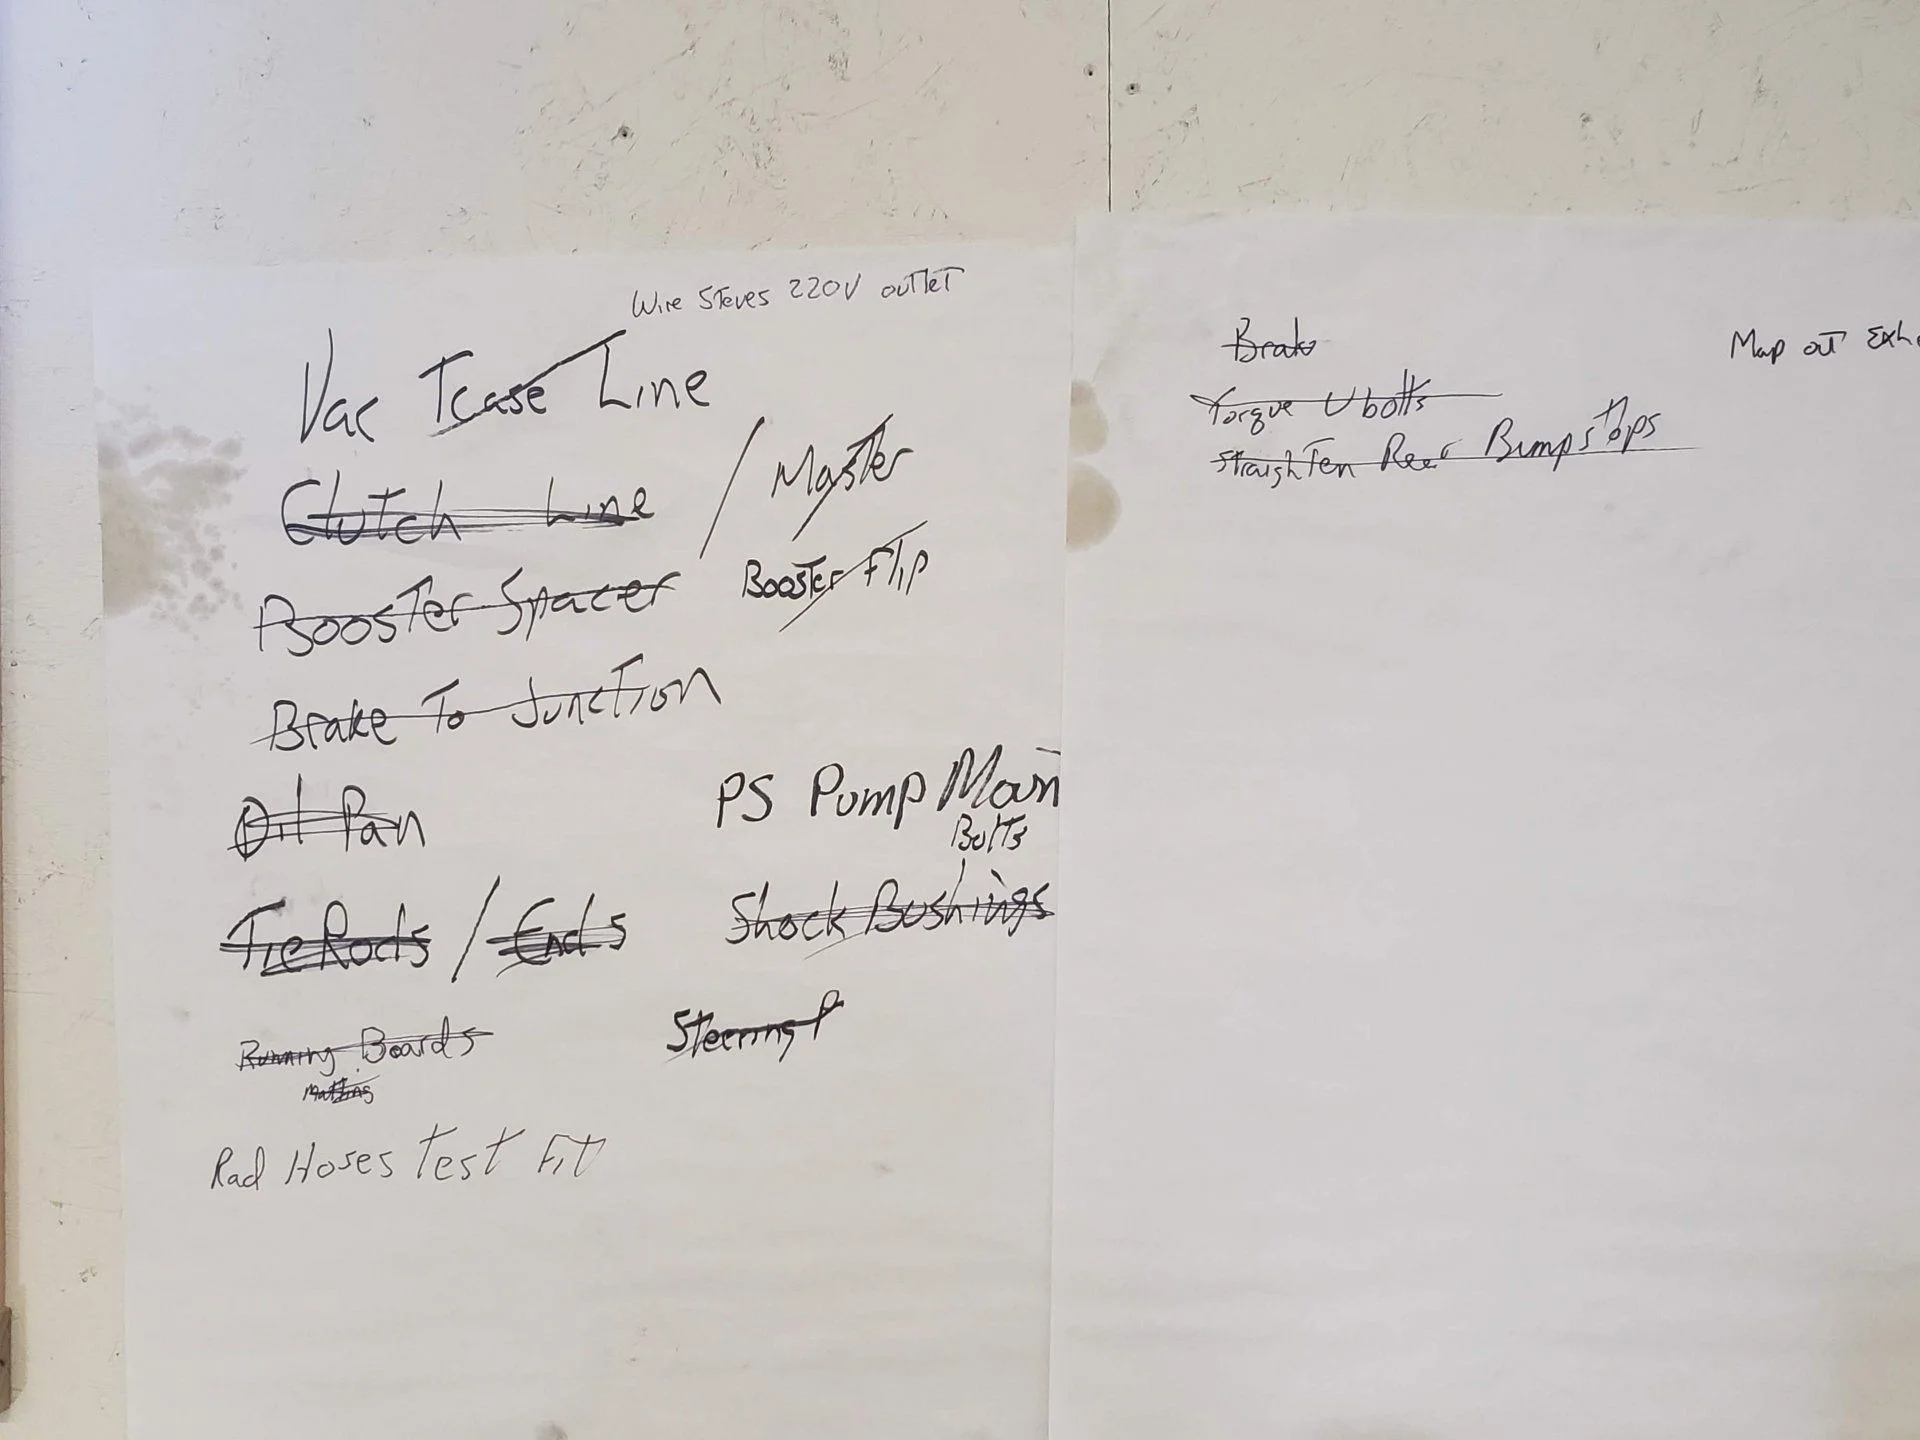 Wire Steves 220V outlet
Vac Tcase Line
Clutch Line / Master
Booster Spacer Booster Flip
Brake To Junction
Oil Pan
PS Pump
Bolts
Tie Rods / Ends
Shock Bushings
Running Boards
Matting
Steering
Rad Hoses Test Fit
Brake
Torque U bolts
Straighten Rear Bumpstops
Map out Exh